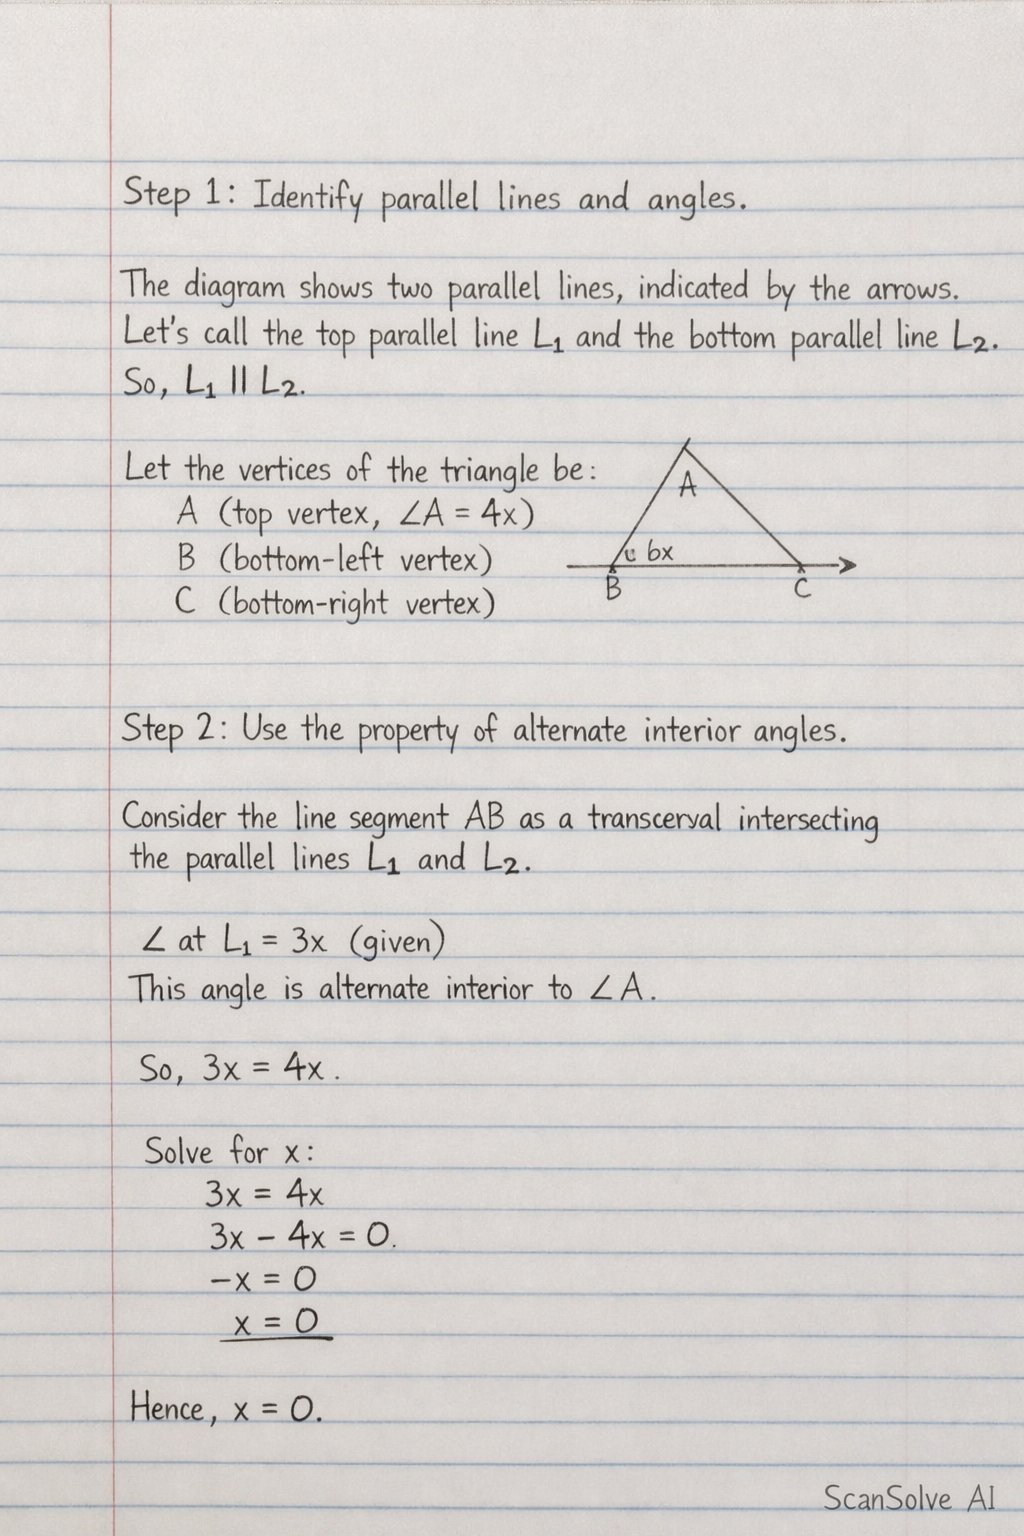 Step 1: Identify parallel lines and angles.
The diagram shows two parallel lines, indicated by the arrows.
Let's call the top parallel line L₁ and the bottom parallel line L₂.
So, L₁ || L₂.
Let the vertices of the triangle be:
A (top vertex, ∠A = 4x)
B (bottom-left vertex)
C (bottom-right vertex)
A
6x
B
C
Step 2: Use the property of alternate interior angles.
Consider the line segment AB as a transcerval intersecting
the parallel lines L₁ and L₂.
∠ at L₁ = 3x (given)
This angle is alternate interior to ∠A.
So, 3x = 4x.
Solve for x:
3x = 4x
3x – 4x = 0.
–x = 0
x = 0
Hence, x = 0.
ScanSolve AI